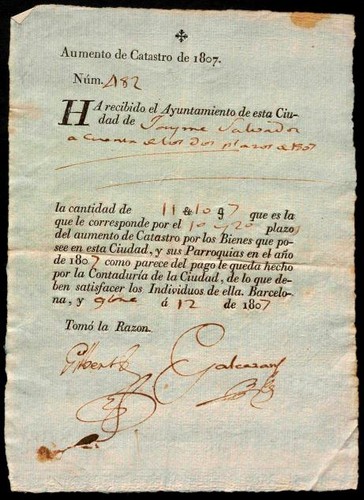 Aumento de Catastro de 1807.
Núm. 182
HA recibido el Ayuntamiento de esta Ciu-
dad de Jayme Salvador
a cuenta de los Dos plazos de 1807
la cantidad de 11 & 10 g 7 que es la
que le corresponde por el 1o y 2o plazo,
del aumento de Catastro por los Bienes que po-
see en esta Ciudad, y sus Parroquias en el año
de 1807 como parece del pago le queda hecho
por la Contaduría de la Ciudad, de lo que de-
ben satisfacer los Individuos de ella. Barcelo-
na, y á 12 de 1807
Tomó la Razon.
Gilbert Galceran